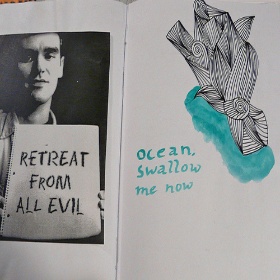 RETREAT
FROM
ALL EVIL
ocean,
swallow
me now